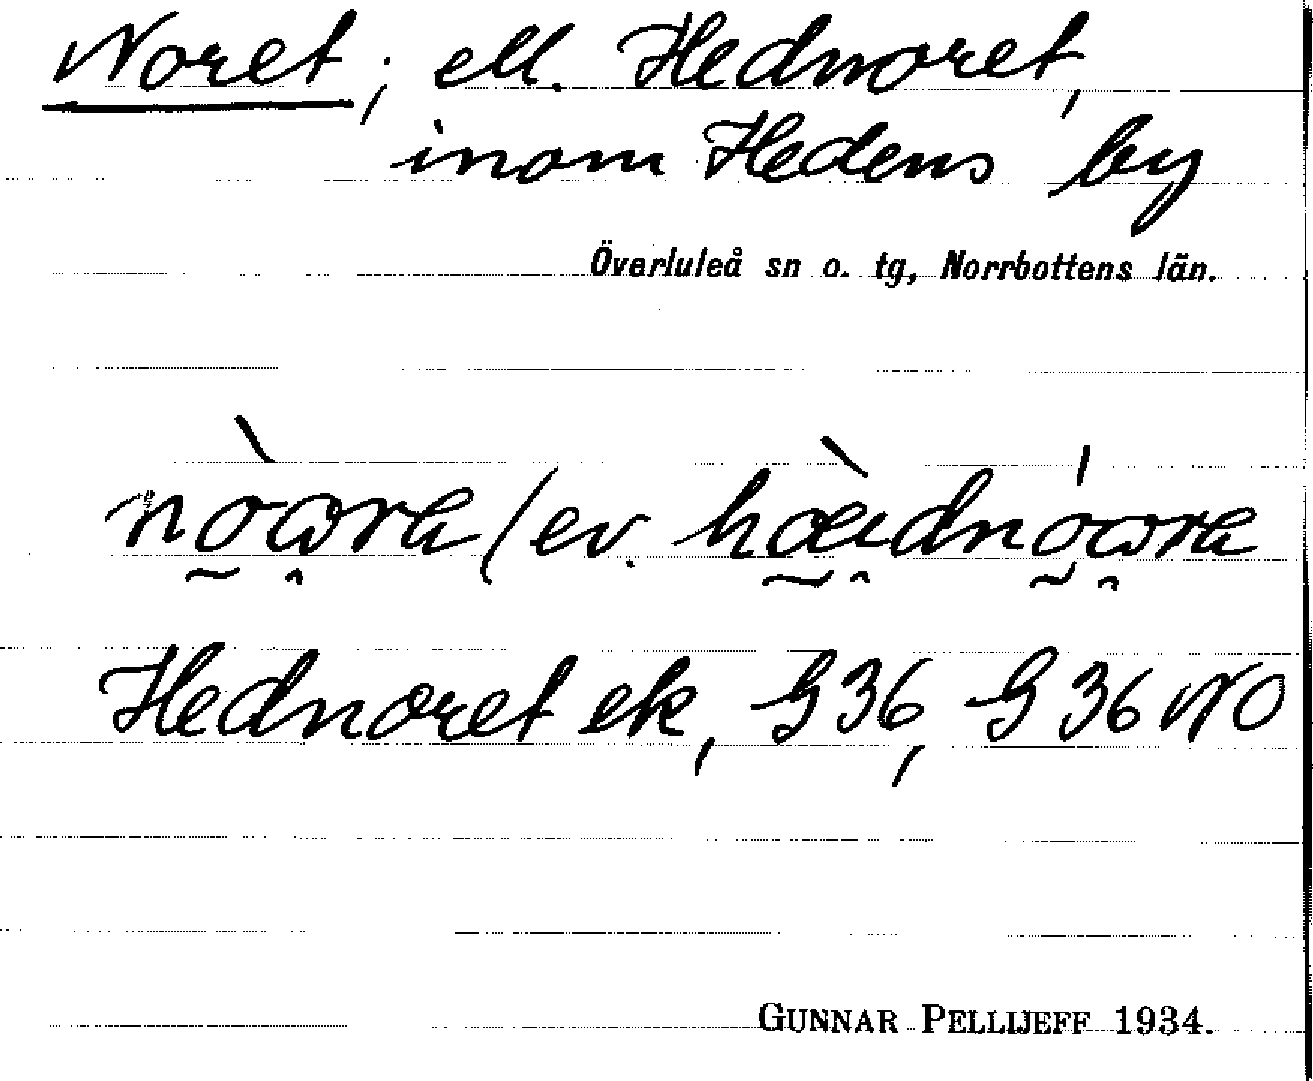 Noret, ell. Hednoret,
inom Hedens by
Överluleå sn o. tg, Norrbottens län.
(ev.
Hednoret ek, G36, G36 NO
GUNNAR PELLIJEFF 1934.